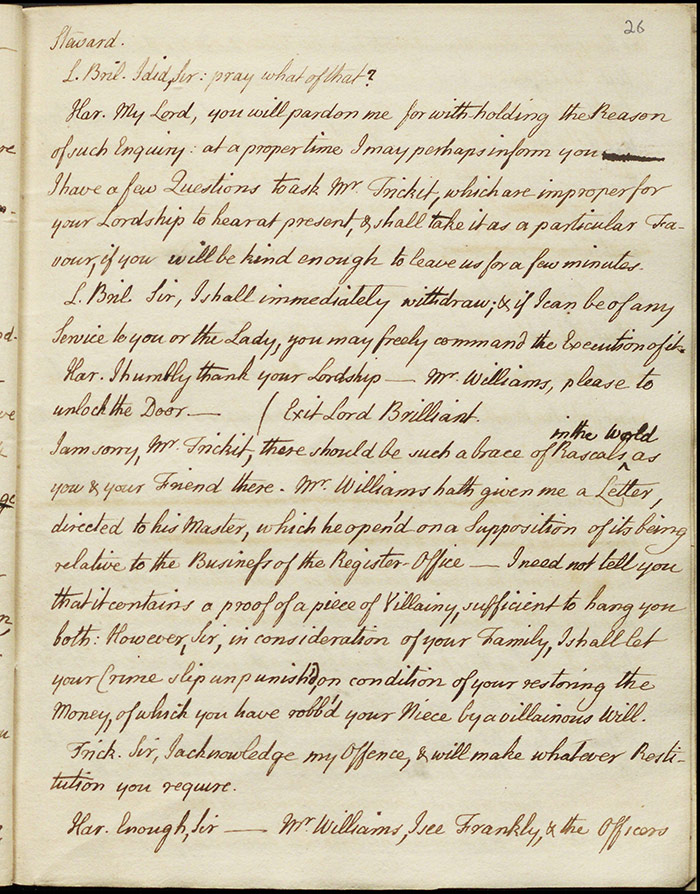 26
Steward.
L. Bril. I did, Sir: pray what of that?
Har. My Lord, you will pardon me for with-holding the Reason
of such Enquiry: at a proper time I may perhaps inform you
I have a few Questions to ask Mr. Trickit, which are improper for
your Lordship to hear at present, & shall take it as a particular Fa-
vour, if you will be kind enough to leave us for a few minutes.
L. Bril. Sir, I shall immediately withdraw; & if I can be of any
Service to you or the Lady, you may freely command the Execution of it.
Har. I humbly thank your Lordship — Mr. Williams, please to
unlock the Door. — ( Exit Lord Brilliant.
in the World
I am sorry, Mr. Trickit, there should be such a brace of Rascals ^ as
you & your Friend there. Mr. Williams hath given me a Letter,
directed to his Master, which he open'd on a Supposition of its being
relative to the Business of the Register-Office — I need not tell you
that it contains a proof of a piece of Villainy, sufficient to hang you
both: However, Sir, in consideration of your Family, I shall let
your Crime slip unpunish'd, on condition of your restoring the
Money, of which you have robb'd your Niece by a villainous Will.
Trick. Sir, I acknowledge my Offence, & will make whatever Resti-
tution you require.
Har. Enough, Sir — Mr. Williams, I see Frankly, & the Officers